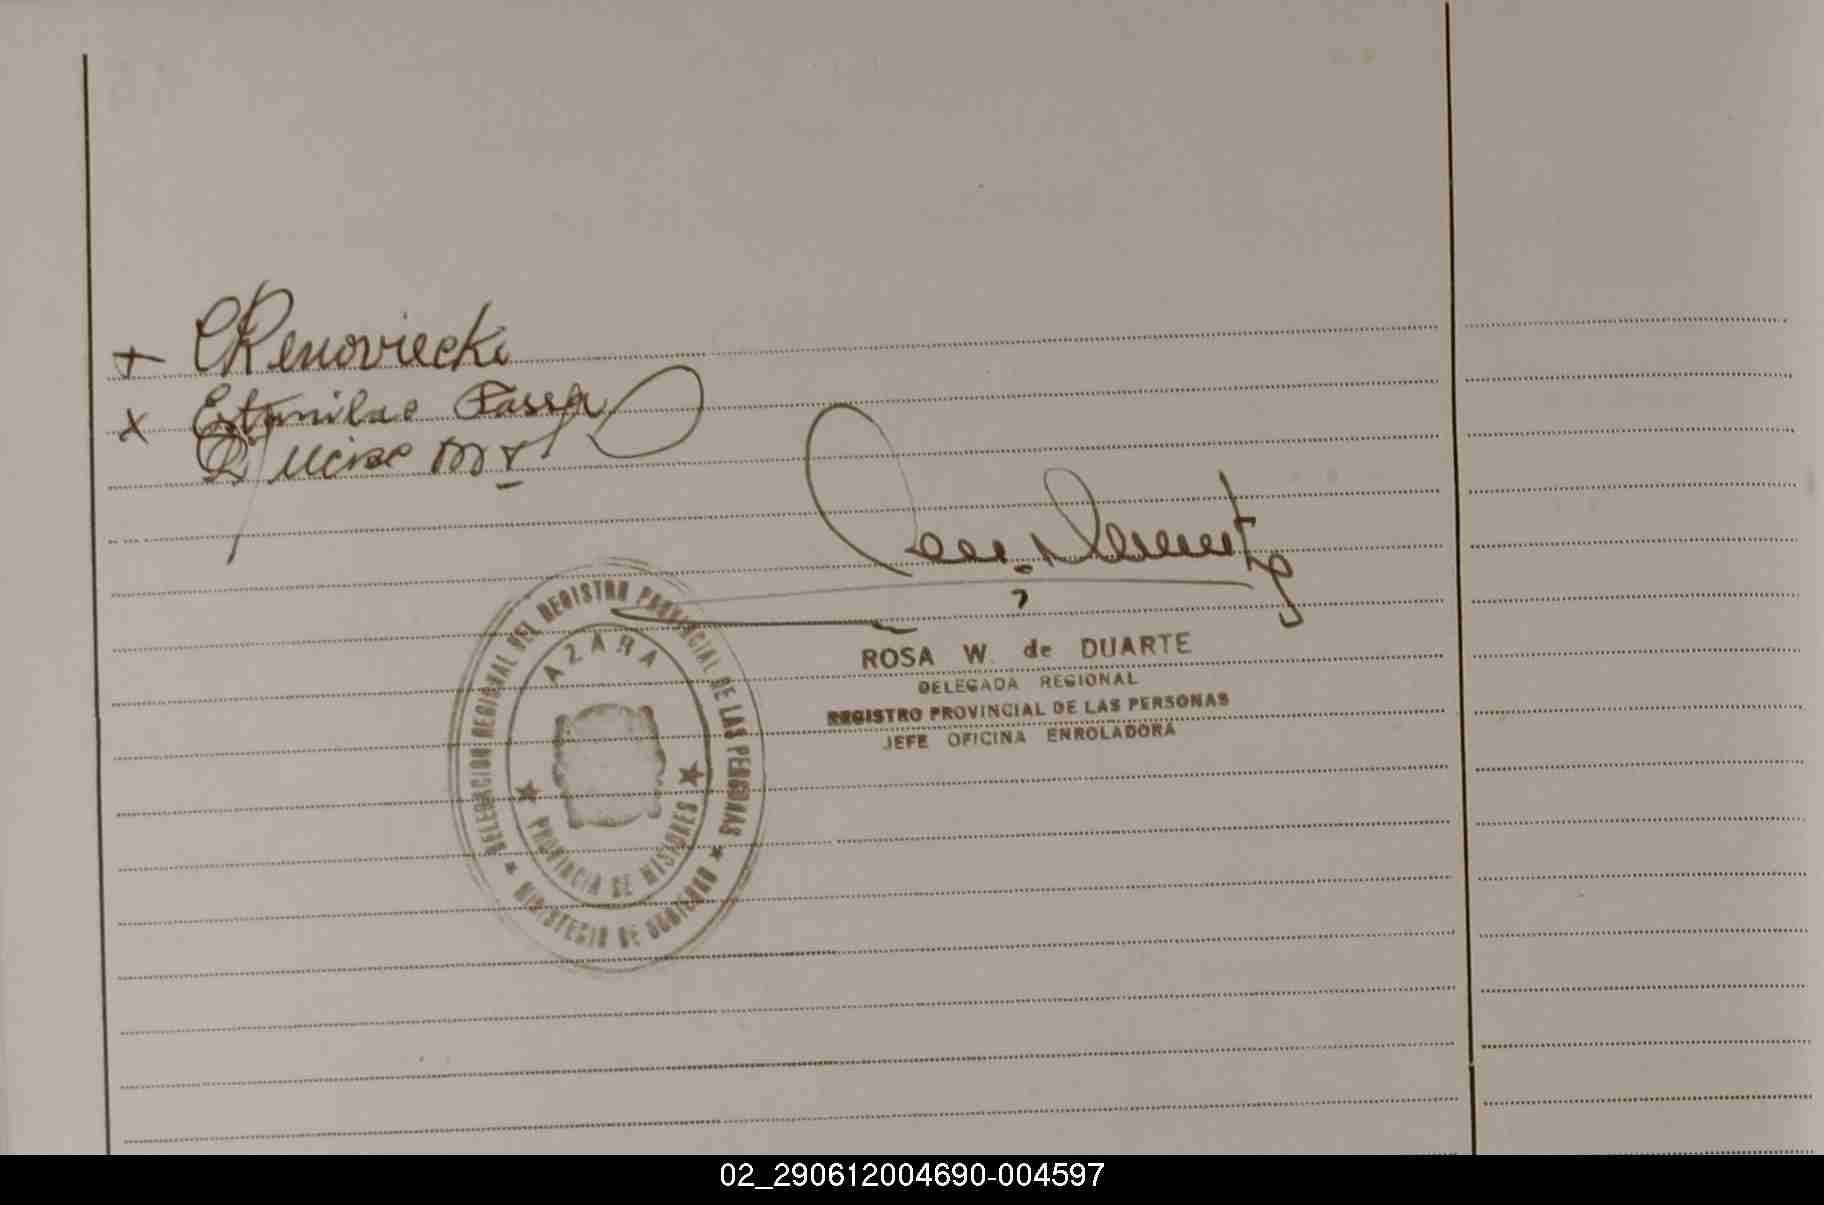 + CRenoviecki
x Estanilao Tassa
AZARA
DELEGACION REGIONAL DEL REGISTRO PROVINCIAL DE LAS PERSONAS
PROVINCIA DE MISIONES
MINISTERIO DE GOBIERNO
ROSA W. de DUARTE
DELEGADA REGIONAL
REGISTRO PROVINCIAL DE LAS PERSONAS
JEFE OFICINA ENROLADORA
02_290612004690-004597